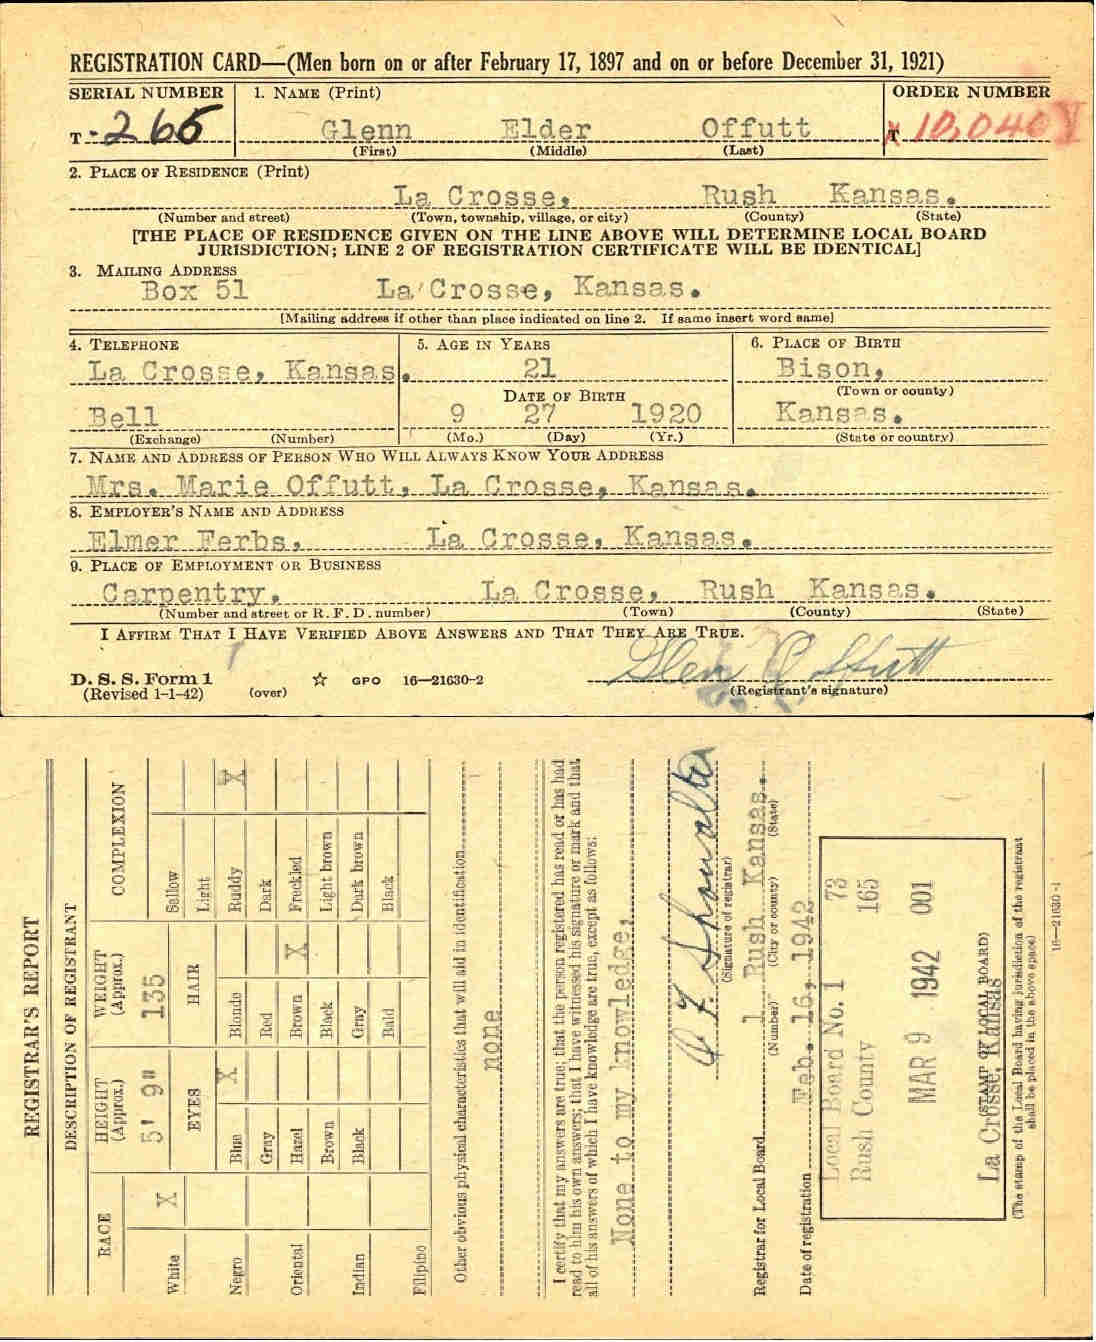 REGISTRATION CARD—(Men born on or after February 17, 1897 and on or before December 31, 1921)
SERIAL NUMBER 1. NAME (Print) ORDER NUMBER
T -265 Glenn Elder Offutt T 10,040
(First) (Middle) (Last)
2. PLACE OF RESIDENCE (Print)
La Crosse, Rush Kansas.
(Number and street) (Town, township, village, or city) (County) (State)
[THE PLACE OF RESIDENCE GIVEN ON THE LINE ABOVE WILL DETERMINE LOCAL BOARD
JURISDICTION; LINE 2 OF REGISTRATION CERTIFICATE WILL BE IDENTICAL]
3. MAILING ADDRESS
Box 51 La Crosse, Kansas.
[Mailing address if other than place indicated on line 2. If same insert word same]
4. TELEPHONE 5. AGE IN YEARS 6. PLACE OF BIRTH
La Crosse, Kansas. 21 Bison,
DATE OF BIRTH (Town or county)
Bell 9 27 1920 Kansas.
(Exchange) (Number) (Mo.) (Day) (Yr.) (State or country)
7. NAME AND ADDRESS OF PERSON WHO WILL ALWAYS KNOW YOUR ADDRESS
Mrs. Marie Offutt, La Crosse, Kansas.
8. EMPLOYER'S NAME AND ADDRESS
Elmer Ferbs, La Crosse, Kansas.
9. PLACE OF EMPLOYMENT OR BUSINESS
Carpentry. La Crosse, Rush Kansas.
(Number and street or R. F. D. number) (Town) (County) (State)
I AFFIRM THAT I HAVE VERIFIED ABOVE ANSWERS AND THAT THEY ARE TRUE.
D. S. S. Form 1
(Revised 1-1-42) (over) ☆ GPO 16—21630-2 Glen Offutt
(Registrant's signature)
REGISTRAR'S REPORT
DESCRIPTION OF REGISTRANT
RACE HEIGHT (Approx.) WEIGHT (Approx.) COMPLEXION
White X 5' 9" 135 Sallow
EYES HAIR Light
Negro Blue X Blonde Ruddy X
Gray Red Dark
Oriental Hazel Brown X Freckled
Brown Black Light brown
Indian Black Gray Dark brown
Bald Black
Filipino
Other obvious physical characteristics that will aid in identification
none
I certify that my answers are true; that the person registered has read or has had
read to him his own answers; that I have witnessed his signature or mark and that
all of his answers of which I have knowledge are true, except as follows:
None to my knowledge,
O F Showalter
(Signature of registrar)
Registrar for Local Board 1 Rush Kansas.
(Number) (City or county) (State)
Date of registration Feb. 16, 1942
Local Board No. 1 73
Rush County 165
MAR 9 1942 001
(STAMP OF LOCAL BOARD)
La Crosse, Kansas
(The stamp of the Local Board having jurisdiction of the registrant
shall be placed in the above space)
16—21630-1